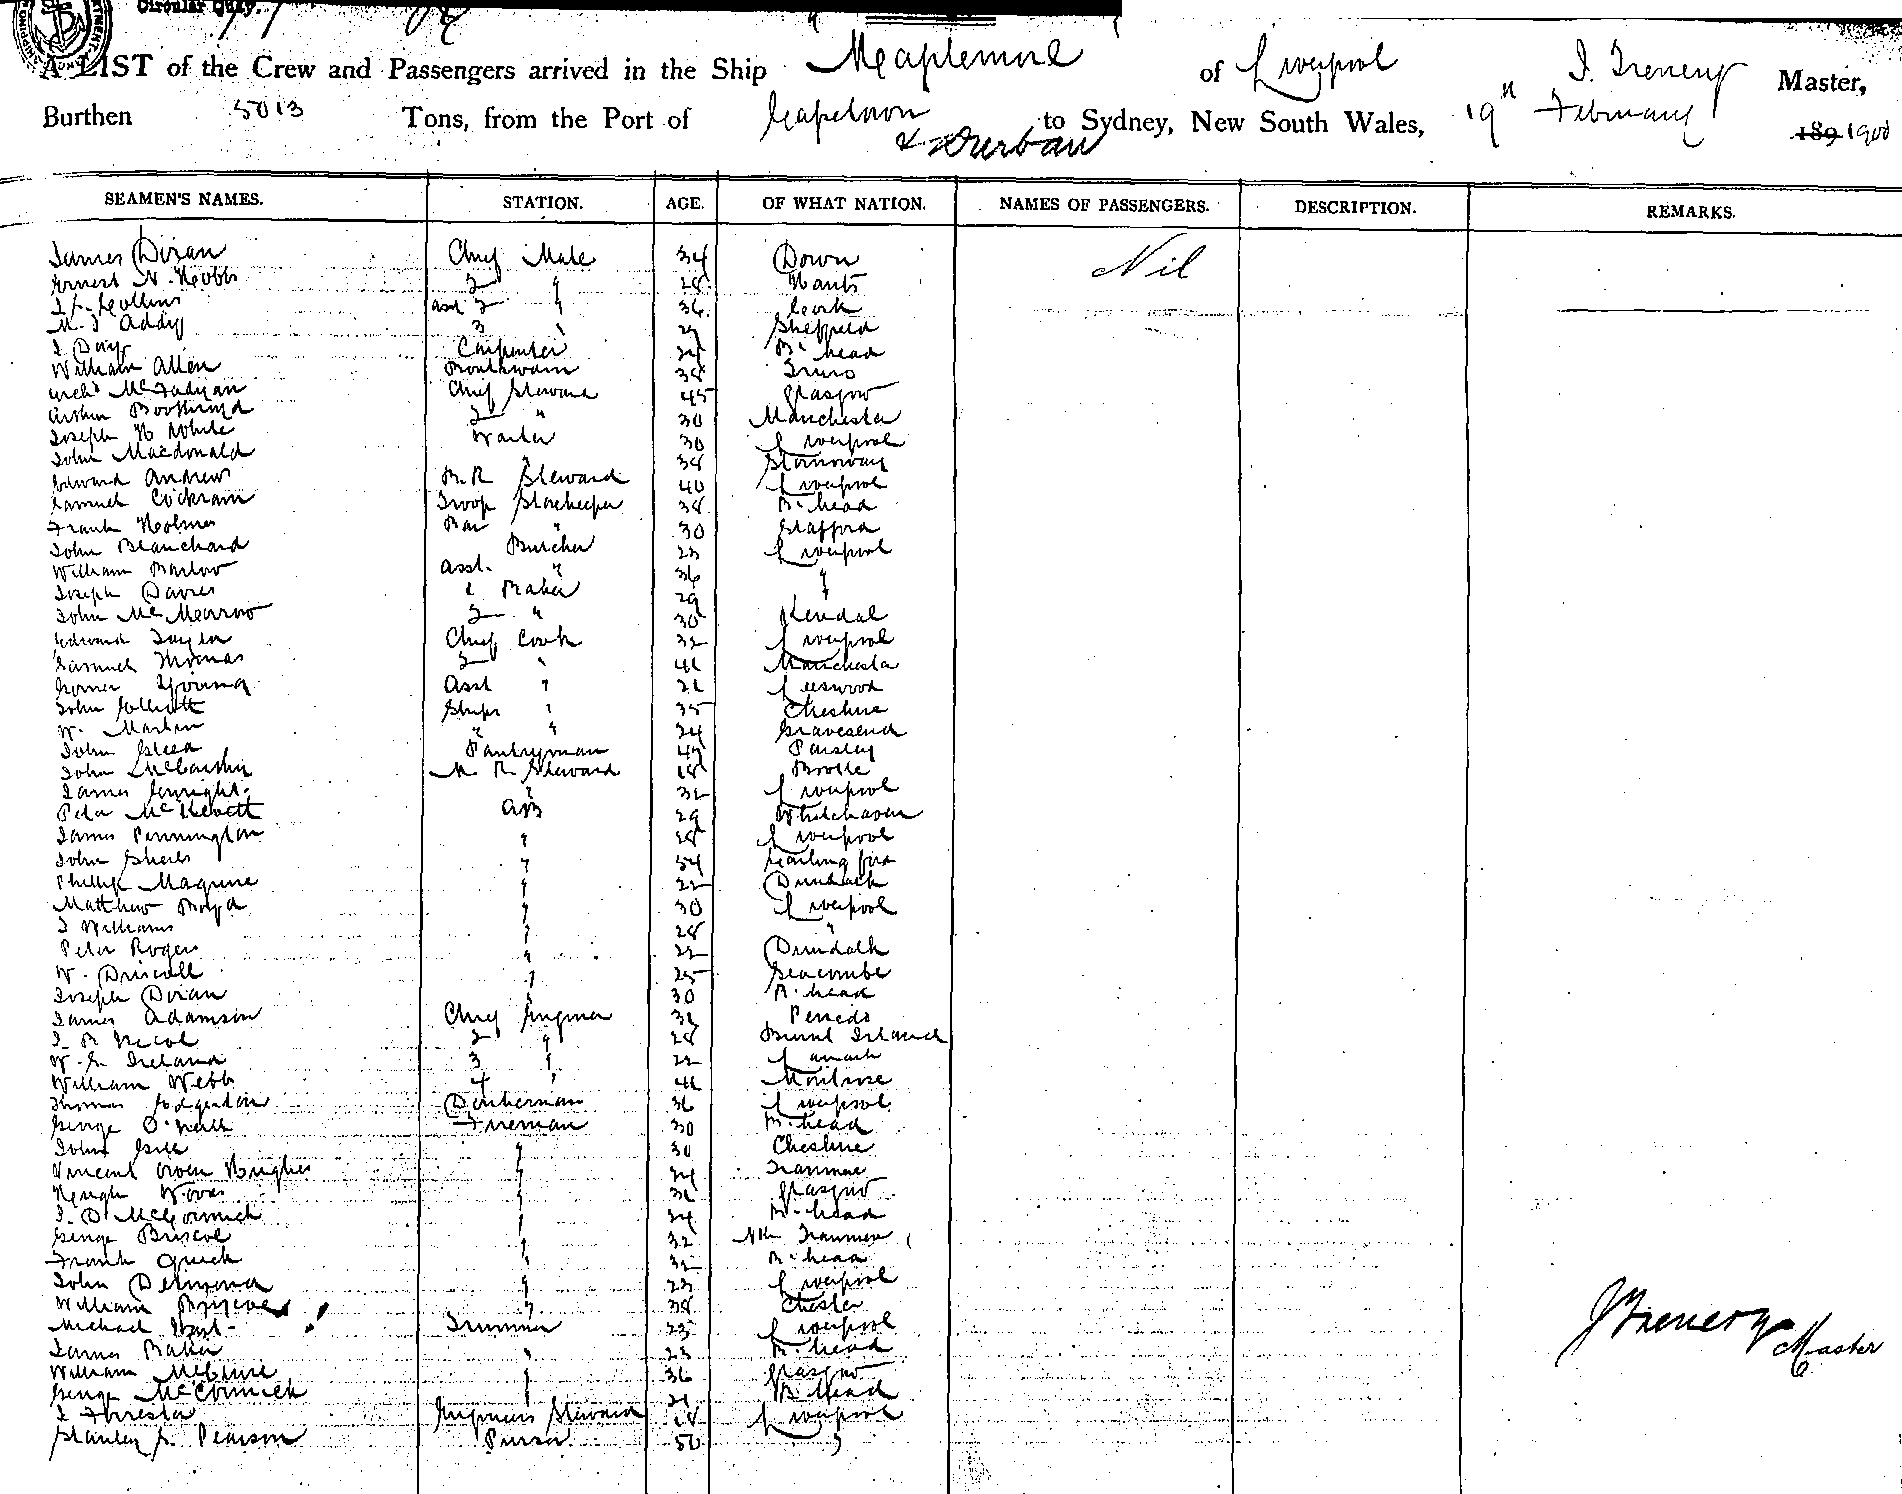 Circular Quay.
A LIST of the Crew and Passengers arrived in the Ship Maplemore of Liverpool J. Trenery Master,
Burthen 5013 Tons, from the Port of Capetown & Durban to Sydney, New South Wales, 19th February 189 1900
SEAMEN'S NAMES. STATION. AGE. OF WHAT NATION. NAMES OF PASSENGERS. DESCRIPTION. REMARKS.
James Doran Chief Mate 34 Down Nil
Ernest N. Hobbs 2 " 28 Hants
Collins asst 2 " 36 Cork
Addy 3 " 29 Sheffield
J Day Carpenter B'head
William Allen Boatswain 38 Truro
Archd McFadyan Chief Steward 45 Glasgow
Arthur Boothroyd 2 " 30 Manchester
Joseph H White Waiter 30 Liverpool
John Macdonald " 38 Stornoway
Edward Andrew Steward 40 Liverpool
Samuel Cockram Troop Storekeeper 38 B'head
Frank Holmes Bar " 30 Stafford
John Blanchard Butcher 23 Liverpool
William Barlow asst. " 36 "
Joseph Davies Baker 29 "
John McMorrow 2 " 30 Kendal
Edward Taylor Chief Cook 32 Liverpool
Samuel Thomas 2 " Manchester
Young Asst " Leeswood
John Elliott Ships " 35 Cheshire
W. Martin " " 24 Gravesend
John Pantryman Paisley
John McCarthy M R Steward 18 Bootle
James Enright " 32 Liverpool
Peter McKevitt AB 29 Whitehaven
James Pennington " 28 Liverpool
John " 54
Phillip Maguire " 22 Dundalk
Matthew Boyd " 30 Liverpool
J Williams " 28 "
Peter Rogers " 22 Dundalk
W. Driscoll " 25 Seacombe
Joseph Doran " 30 B'head
James Adamson Chief Engineer
J. R Nicol 2 " 28 Burnt Island
W. G. Ireland 3 " 22 Lanark
William Webb 4 " Montrose
Thomas Donkeyman 36 Liverpool
George O'Neill Fireman 30 B'head
John Gill " 30 Cheshire
Vincent Owen Hughes " 24 Tranmere
Hugh Wood " Glasgow
J. D McCormick " 24 B'head
George Briscoe " 32 Nth Tranmere
Frank Quick " 32 B'head
John Desmond " 23 Liverpool
William Briscoe " 38 Chester
Michael Trimmer 23 Liverpool
James Baker " 23 B'head
William McClure " 36 Glasgow
George McCormick " 21 B'head
J Forrester Engineers Steward 18 Liverpool
Stanley Pearson Purser 50 "
J Trenery Master